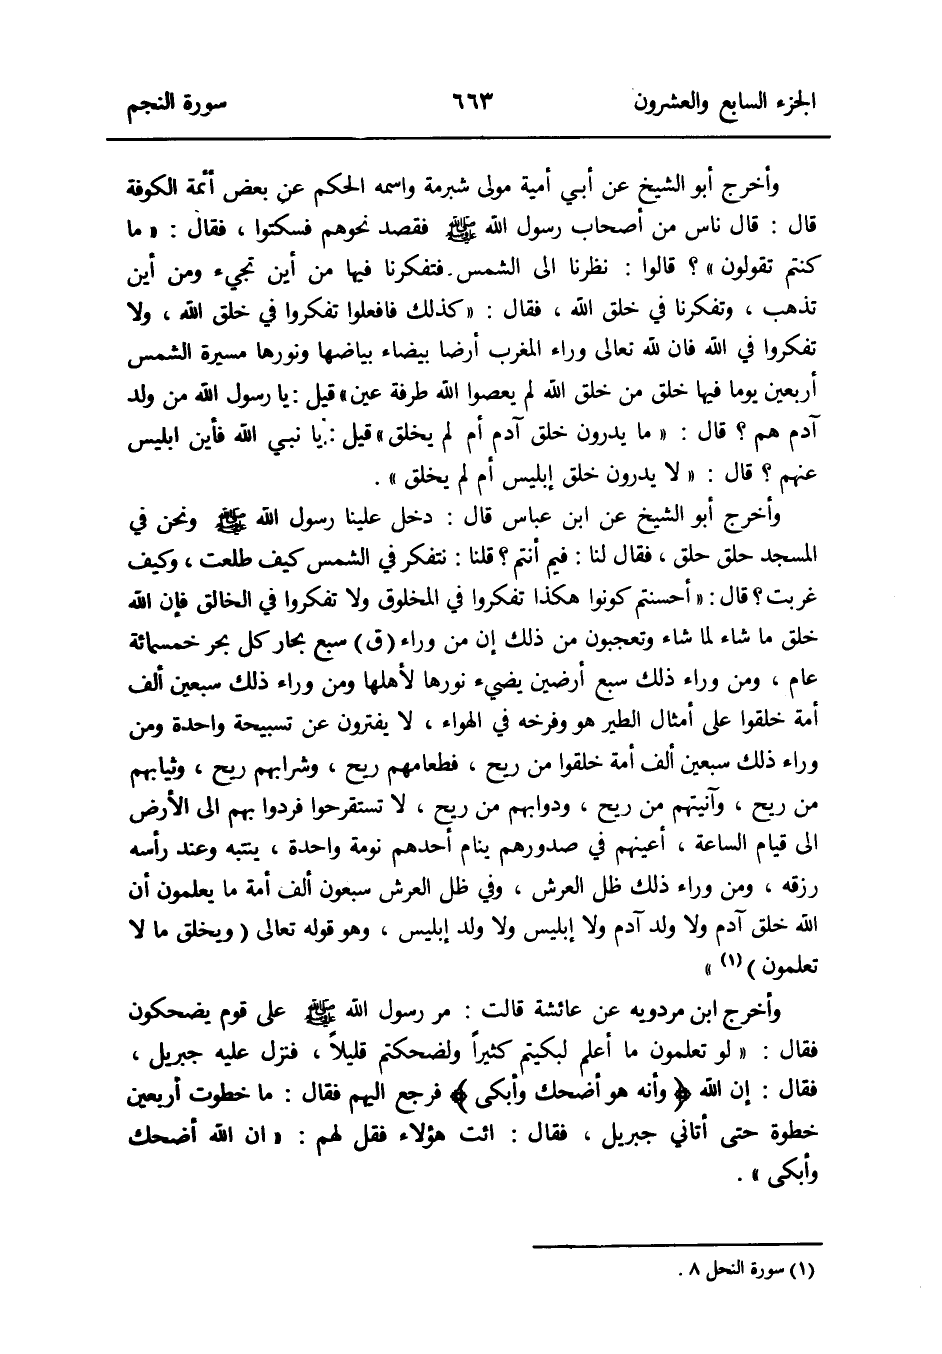 الجزء السابع والعشرون ٦٦٣ سورة النجم
وأخرج أبو الشيخ عن أبي أمية مولى شبرمة واسمه الحكم عن بعض أئمة الكوفة
قال : قال ناس من أصحاب رسول الله ﷺ فقصد نحوهم فسكتوا ، فقال : « ما
كنتم تقولون » ؟ قالوا : نظرنا الى الشمس فتفكرنا فيها من أين تجيء ومن أين
تذهب ، وتفكرنا في خلق الله ، فقال : « كذلك فافعلوا تفكروا في خلق الله ، ولا
تفكروا في الله فان لله تعالى وراء المغرب أرضا بيضاء بياضها ونورها مسيرة الشمس
أربعين يوما فيها خلق من خلق الله لم يعصوا الله طرفة عين » قيل : يا رسول الله من ولد
آدم هم ؟ قال : « ما يدرون خلق آدم أم لم يخلق » قيل : يا نبي الله فأين ابليس
عنهم ؟ قال : « لا يدرون خلق إبليس أم لم يخلق » .
وأخرج أبو الشيخ عن ابن عباس قال : دخل علينا رسول الله ﷺ ونحن في
المسجد حلق حلق ، فقال لنا : فيم أنتم ؟ قلنا : نتفكر في الشمس كيف طلعت ، وكيف
غربت ؟ قال : « أحسنتم كونوا هكذا تفكروا في المخلوق ولا تفكروا في الخالق فإن الله
خلق ما شاء لما شاء وتعجبون من ذلك إن من وراء (ق) سبع بحار كل بحر خمسمائة
عام ، ومن وراء ذلك سبع أرضين يضيء نورها لأهلها ومن وراء ذلك سبعين ألف
أمة خلقوا على أمثال الطير هو وفرخه في الهواء ، لا يفترون عن تسبيحة واحدة ومن
وراء ذلك سبعين ألف أمة خلقوا من ريح ، فطعامهم ريح ، وشرابهم ريح ، وثيابهم
من ريح ، وآنيتهم من ريح ، ودوابهم من ريح ، لا تستقرحوا فردوا بهم الى الأرض
الى قيام الساعة ، أعينهم في صدورهم ينام أحدهم نومة واحدة ، ينتبه وعند رأسه
رزقه ، ومن وراء ذلك ظل العرش ، وفي ظل العرش سبعون ألف أمة ما يعلمون أن
الله خلق آدم ولا ولد آدم ولا إبليس ولا ولد إبليس ، وهو قوله تعالى ( ويخلق ما لا
تعلمون ) (١) »
وأخرج ابن مردويه عن عائشة قالت : مر رسول الله ﷺ على قوم يضحكون
فقال : « لو تعلمون ما أعلم لبكيتم كثيراً ولضحكتم قليلاً ، فنزل عليه جبريل ،
فقال : إن الله ﴿ وأنه هو أضحك وأبكى ﴾ فرجع اليهم فقال : ما خطوت أربعين
خطوة حتى أتاني جبريل ، فقال : ائت هؤلاء فقل لهم : « ان الله أضحك
وأبكى » .
(١) سورة النحل ٨ .